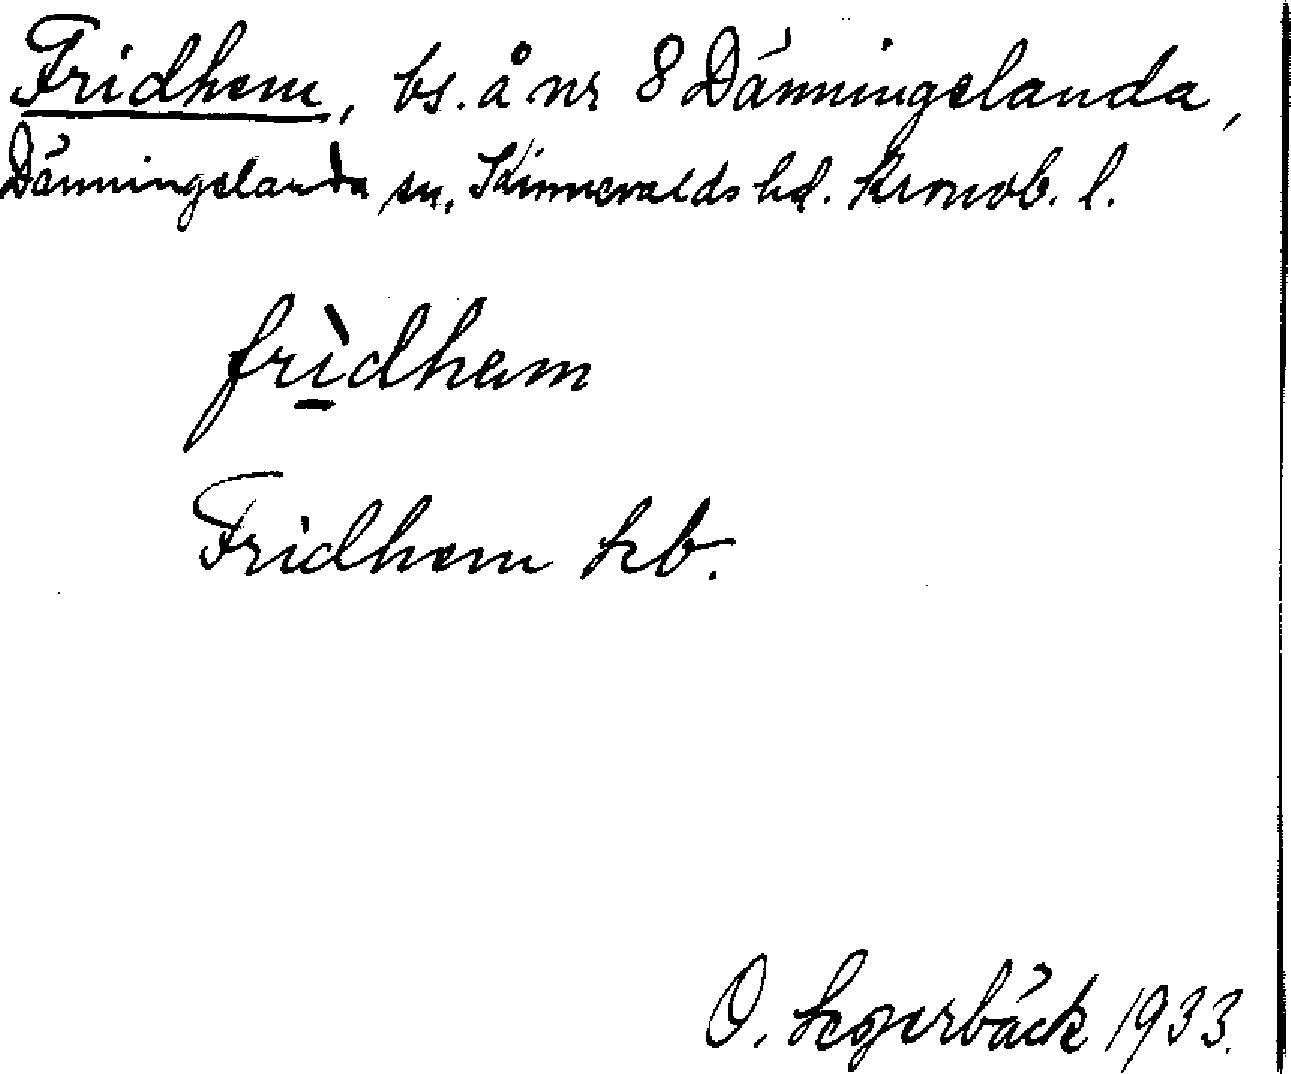 Fridhem, bs. å nr 8 Dänningelanda,
Dänningelanda sn. Kinnevalds hd. Kronob. l.
frìdhem
Fridhem hb.
O. Segerbäck 1933.